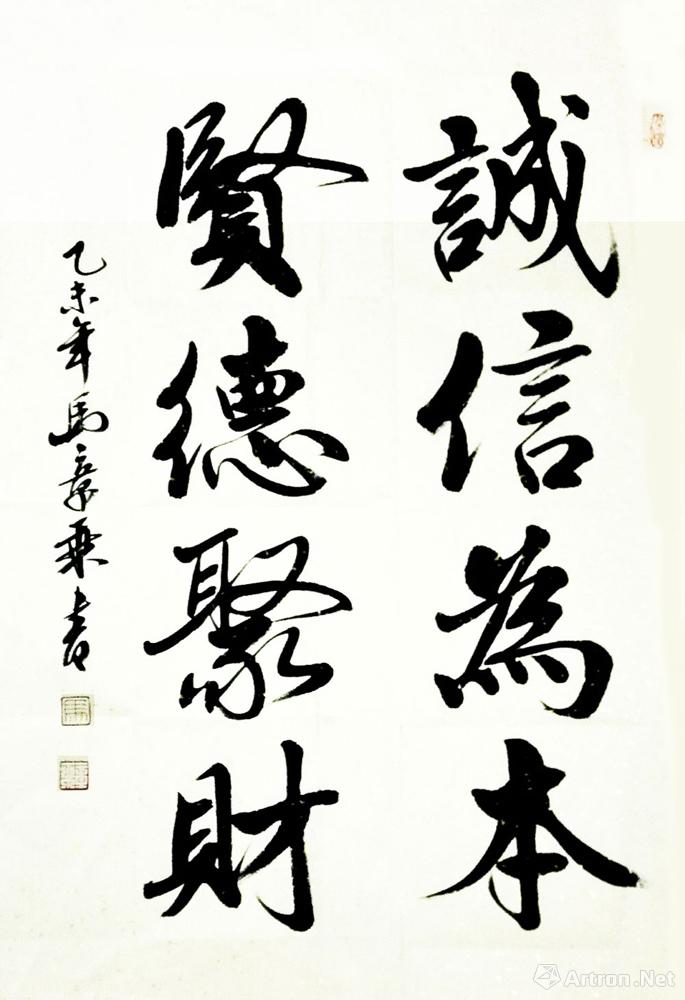 誠信為本
賢德聚財
乙未年馬章乘書
Artron.Net